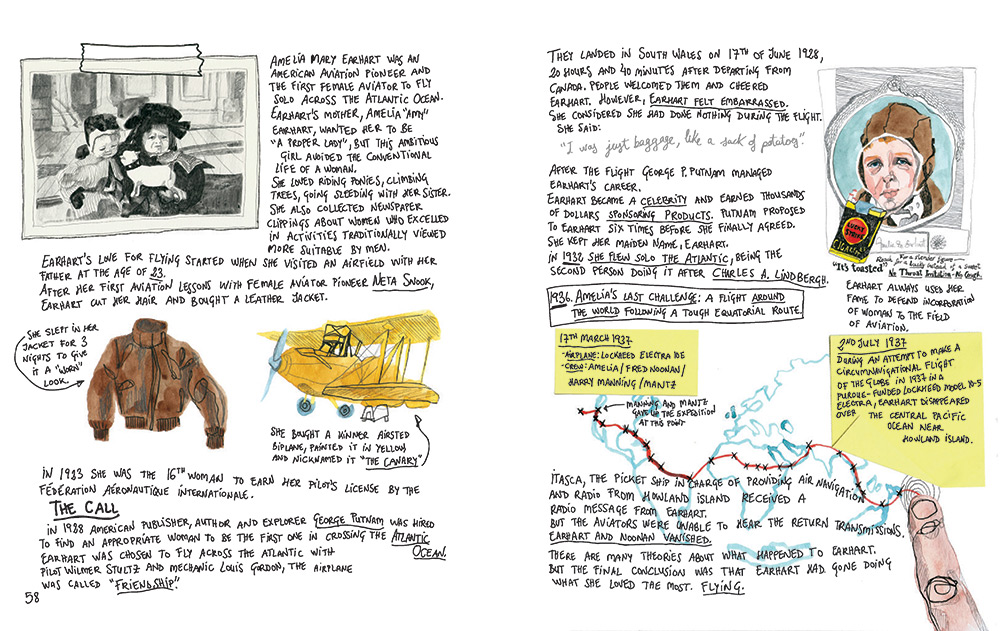 AMELIA MARY EARHART WAS AN
AMERICAN AVIATION PIONEER AND
THE FIRST FEMALE AVIATOR TO FLY
SOLO ACROSS THE ATLANTIC OCEAN.
EARHART'S MOTHER, AMELIA "AMY"
EARHART, WANTED HER TO BE
"A PROPER LADY", BUT THIS AMBITIOUS
GIRL AVOIDED THE CONVENTIONAL
LIFE OF A WOMAN.
SHE LOVED RIDING PONIES, CLIMBING
TREES, GOING SLEDDING WITH HER SISTER.
SHE ALSO COLLECTED NEWSPAPER
CLIPPINGS ABOUT WOMEN WHO EXCELLED
IN ACTIVITIES TRADITIONALLY VIEWED
MORE SUITABLE BY MEN.
EARHART'S LOVE FOR FLYING STARTED WHEN SHE VISITED AN AIRFIELD WITH HER
FATHER AT THE AGE OF 23.
AFTER HER FIRST AVIATION LESSONS WITH FEMALE AVIATOR PIONEER NETA SNOOK,
EARHART CUT HER HAIR AND BOUGHT A LEATHER JACKET.
SHE SLEPT IN HER
JACKET FOR 3
NIGHTS TO GIVE
IT A "WORN"
LOOK.
SHE BOUGHT A KINNER AIRSTED
BIPLANE, PAINTED IT IN YELLOW
AND NICKNAMED IT "THE CANARY"
IN 1933 SHE WAS THE 16TH WOMAN TO EARN HER PILOT'S LICENSE BY THE
FÉDÉRATION AÉRONAUTIQUE INTERNATIONALE.
THE CALL
IN 1938 AMERICAN PUBLISHER, AUTHOR AND EXPLORER GEORGE PUTNAM WAS HIRED
TO FIND AN APPROPRIATE WOMAN TO BE THE FIRST ONE IN CROSSING THE ATLANTIC
OCEAN.
EARHART WAS CHOSEN TO FLY ACROSS THE ATLANTIC WITH
PILOT WILMER STULTZ AND MECHANIC LOUIS GORDON, THE AIRPLANE
WAS CALLED "FRIENDSHIP".
58
THEY LANDED IN SOUTH WALES ON 17TH OF JUNE 1928,
20 HOURS AND 40 MINUTES AFTER DEPARTING FROM
CANADA. PEOPLE WELCOMED THEM AND CHEERED
EARHART. HOWEVER, EARHART FELT EMBARRASSED.
SHE CONSIDERED SHE HAD DONE NOTHING DURING THE FLIGHT.
SHE SAID:
"I was just baggage, like a sack of potatoes".
AFTER THE FLIGHT GEORGE P. PUTNAM MANAGED
EARHART'S CAREER.
EARHART BECAME A CELEBRITY AND EARNED THOUSANDS
OF DOLLARS SPONSORING PRODUCTS. PUTNAM PROPOSED
TO EARHART SIX TIMES BEFORE SHE FINALLY AGREED.
SHE KEPT HER MAIDEN NAME, EARHART.
IN 1932 SHE FLEW SOLO THE ATLANTIC, BEING THE
SECOND PERSON DOING IT AFTER CHARLES A. LINDBERGH.
LUCKY
STRIKE
CIGARETTES
Amelia Earhart
Reach For a Lucky instead of a sweet
"It's toasted"
No Throat Irritation - No Cough.
EARHART ALWAYS USED HER
FAME TO DEFEND INCORPORATION
OF WOMAN TO THE FIELD
OF AVIATION.
1936. AMELIA'S LAST CHALLENGE: A FLIGHT AROUND
THE WORLD FOLLOWING A TOUGH EQUATORIAL ROUTE.
17TH MARCH 1937
-AIRPLANE: LOCKHEED ELECTRA 10E
-CREW: AMELIA / FRED NOONAN /
HARRY MANNING / MANTZ
MANNING AND MANTZ
GAVE UP THE EXPEDITION
AT THIS POINT
2ND JULY 1937
DURING AN ATTEMPT TO MAKE A
CIRCUMNAVIGATIONAL FLIGHT
OF THE GLOBE IN 1937 IN A
PURDUE-FUNDED LOCKHEED MODEL 10-S
ELECTRA, EARHART DISAPPEARED
OVER THE CENTRAL PACIFIC
OCEAN NEAR
HOWLAND ISLAND.
ITASCA, THE PICKET SHIP IN CHARGE OF PROVIDING AIR NAVIGATION
AND RADIO FROM HOWLAND ISLAND RECEIVED A
RADIO MESSAGE FROM EARHART.
BUT THE AVIATORS WERE UNABLE TO HEAR THE RETURN TRANSMISSIONS.
EARHART AND NOONAN VANISHED.
THERE ARE MANY THEORIES ABOUT WHAT HAPPENED TO EARHART.
BUT THE FINAL CONCLUSION WAS THAT EARHART HAD GONE DOING
WHAT SHE LOVED THE MOST. FLYING.